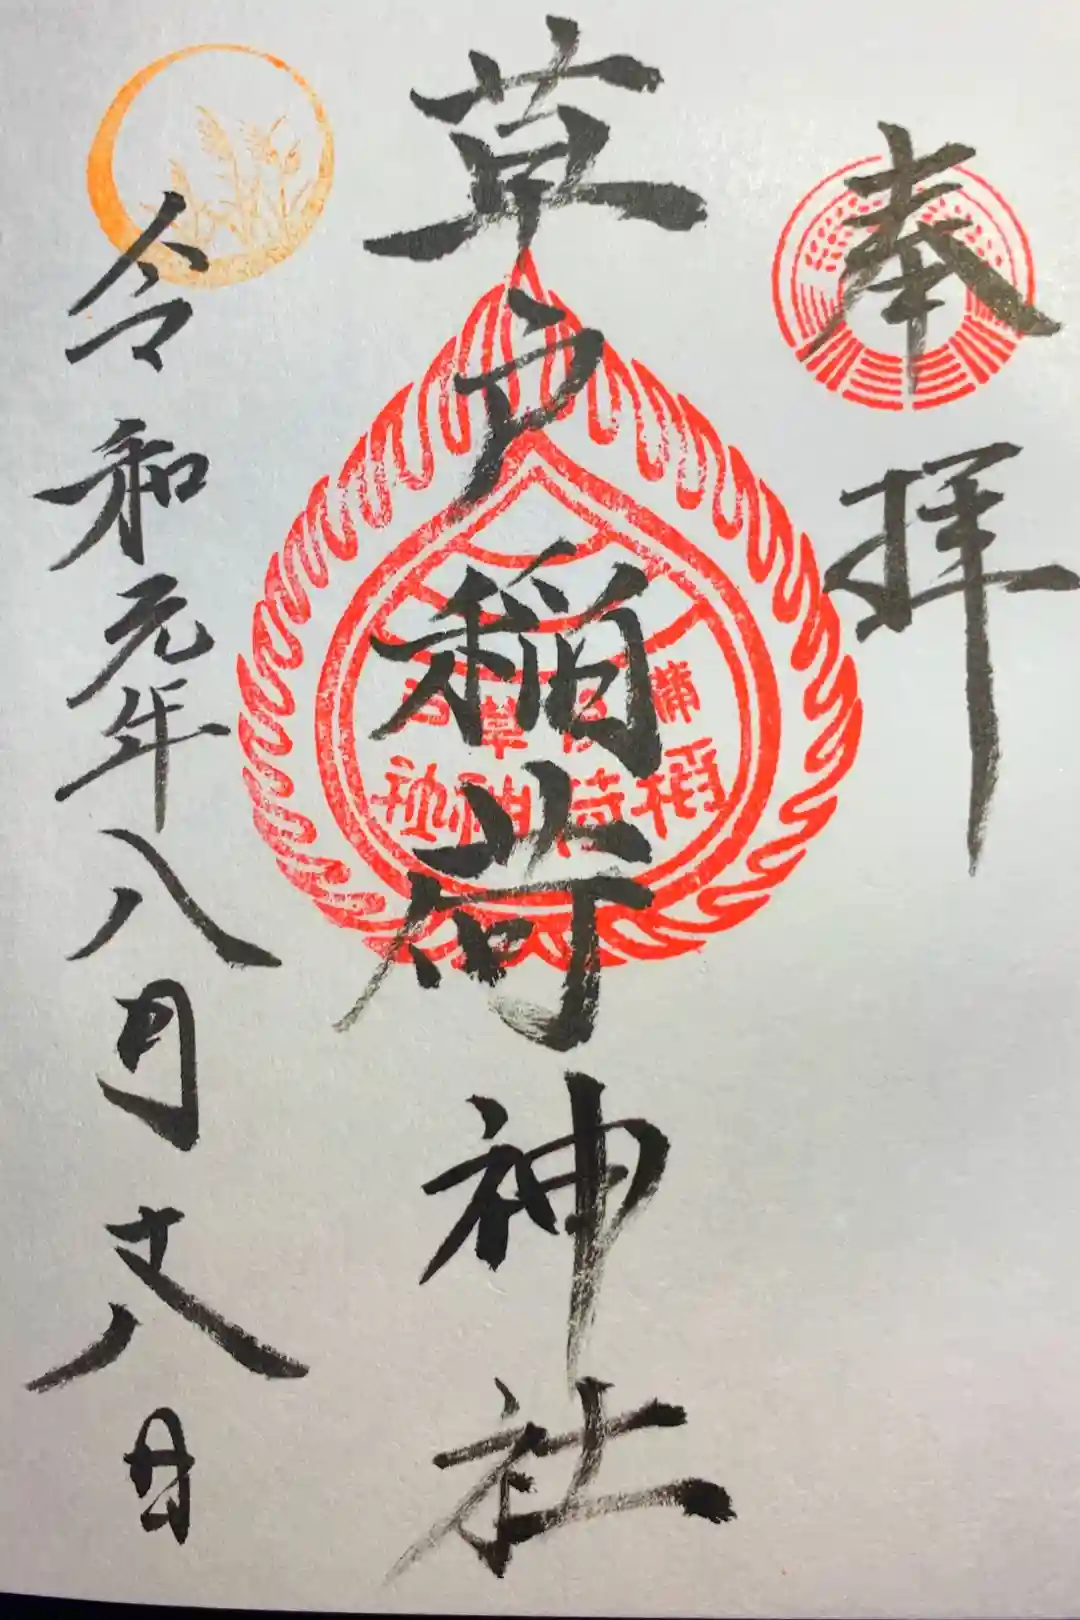 奉拝
草戸稲荷神社
稲荷神社
令和元年八月十八日